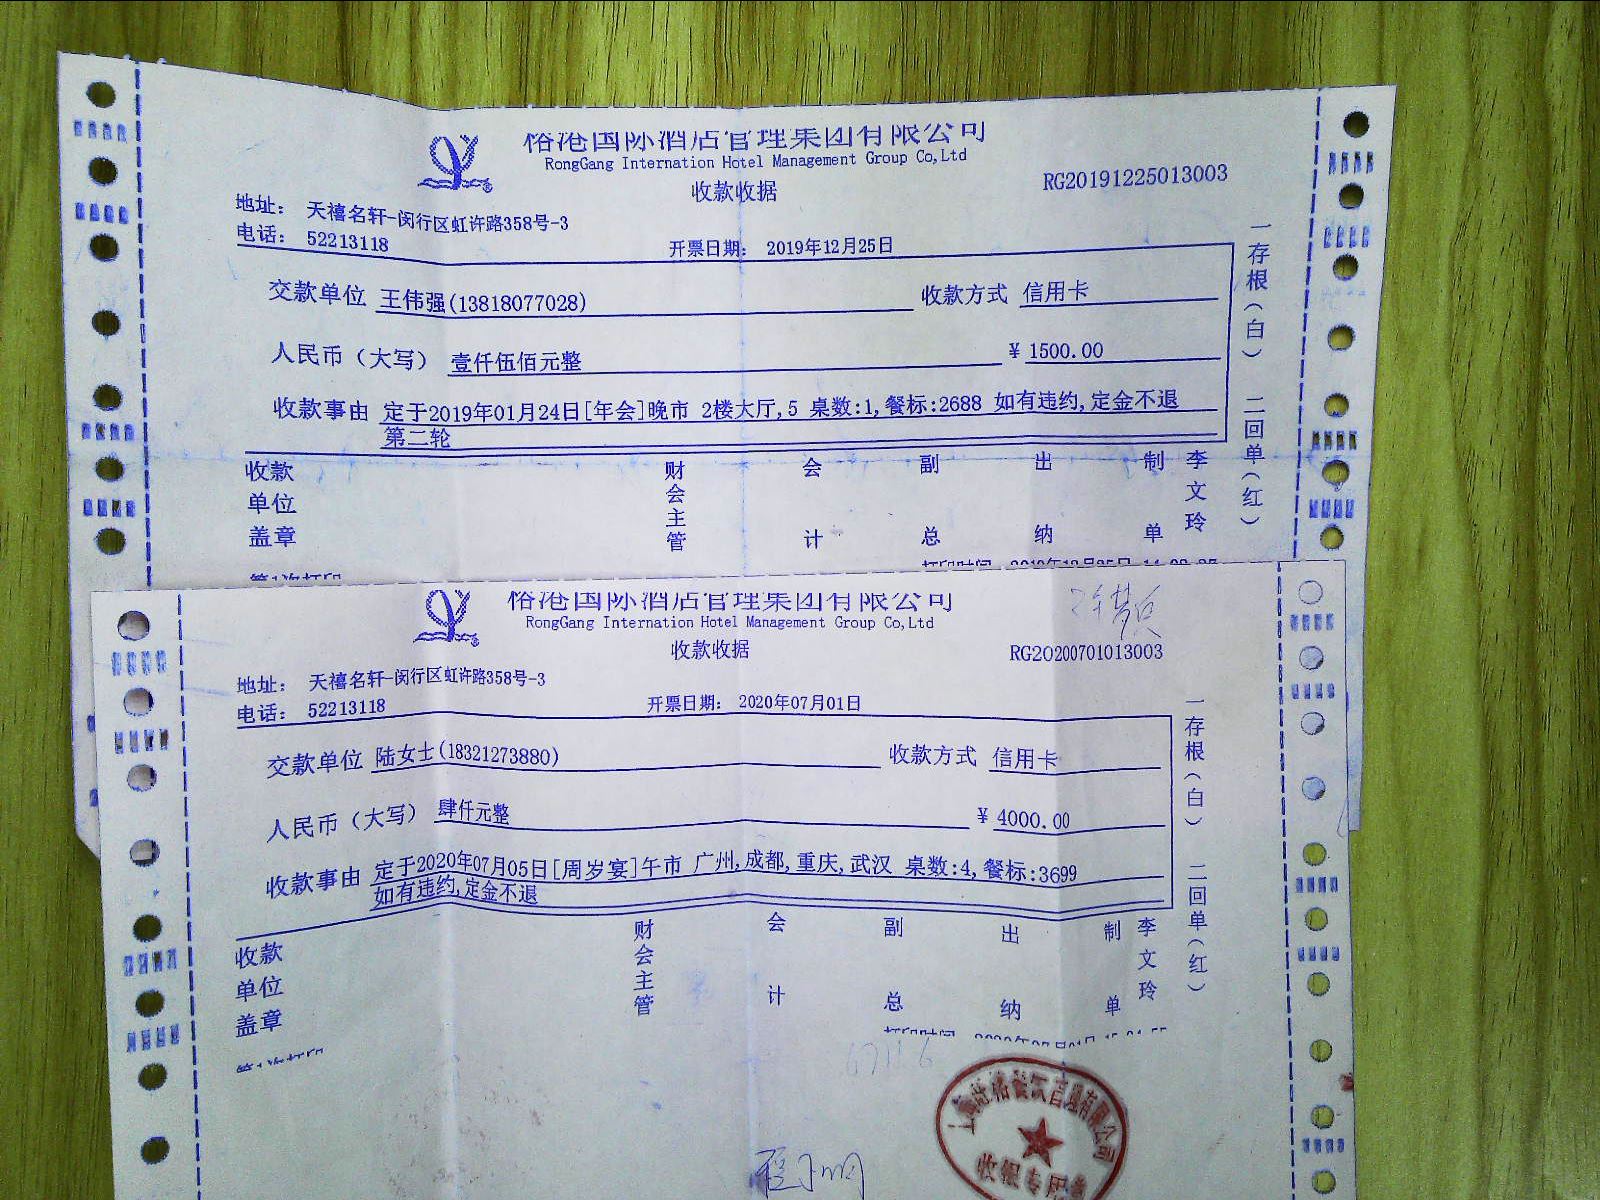 俗港国际酒店管理集团有限公司
RongGang Internation Hotel Management Group Co,Ltd
收款收据
RG20191225013003
地址： 天禧名轩-闵行区虹许路358号-3
电话： 52213118
开票日期： 2019年12月25日
交款单位 王伟强(13818077028) 收款方式 信用卡
人民币（大写） 壹仟伍佰元整 ¥ 1500.00
收款事由 定于2019年01月24日[年会]晚市 2楼大厅,5 桌数:1,餐标:2688 如有违约,定金不退
第二轮
收款单位盖章 财会主管 会计 副总 出纳 制单 李文玲
一存根（白） 二回单（红）
第1次打印
俗港国际酒店管理集团有限公司
RongGang Internation Hotel Management Group Co,Ltd
收款收据
RG20200701013003
地址： 天禧名轩-闵行区虹许路358号-3
电话： 52213118
开票日期： 2020年07月01日
交款单位 陆女士(18321273880) 收款方式 信用卡
人民币（大写） 肆仟元整 ¥ 4000.00
收款事由 定于2020年07月05日[周岁宴]午市 广州,成都,重庆,武汉 桌数:4,餐标:3699
如有违约,定金不退
收款单位盖章 财会主管 会计 副总 出纳 制单 李文玲
一存根（白） 二回单（红）
第1次打印
收银专用章